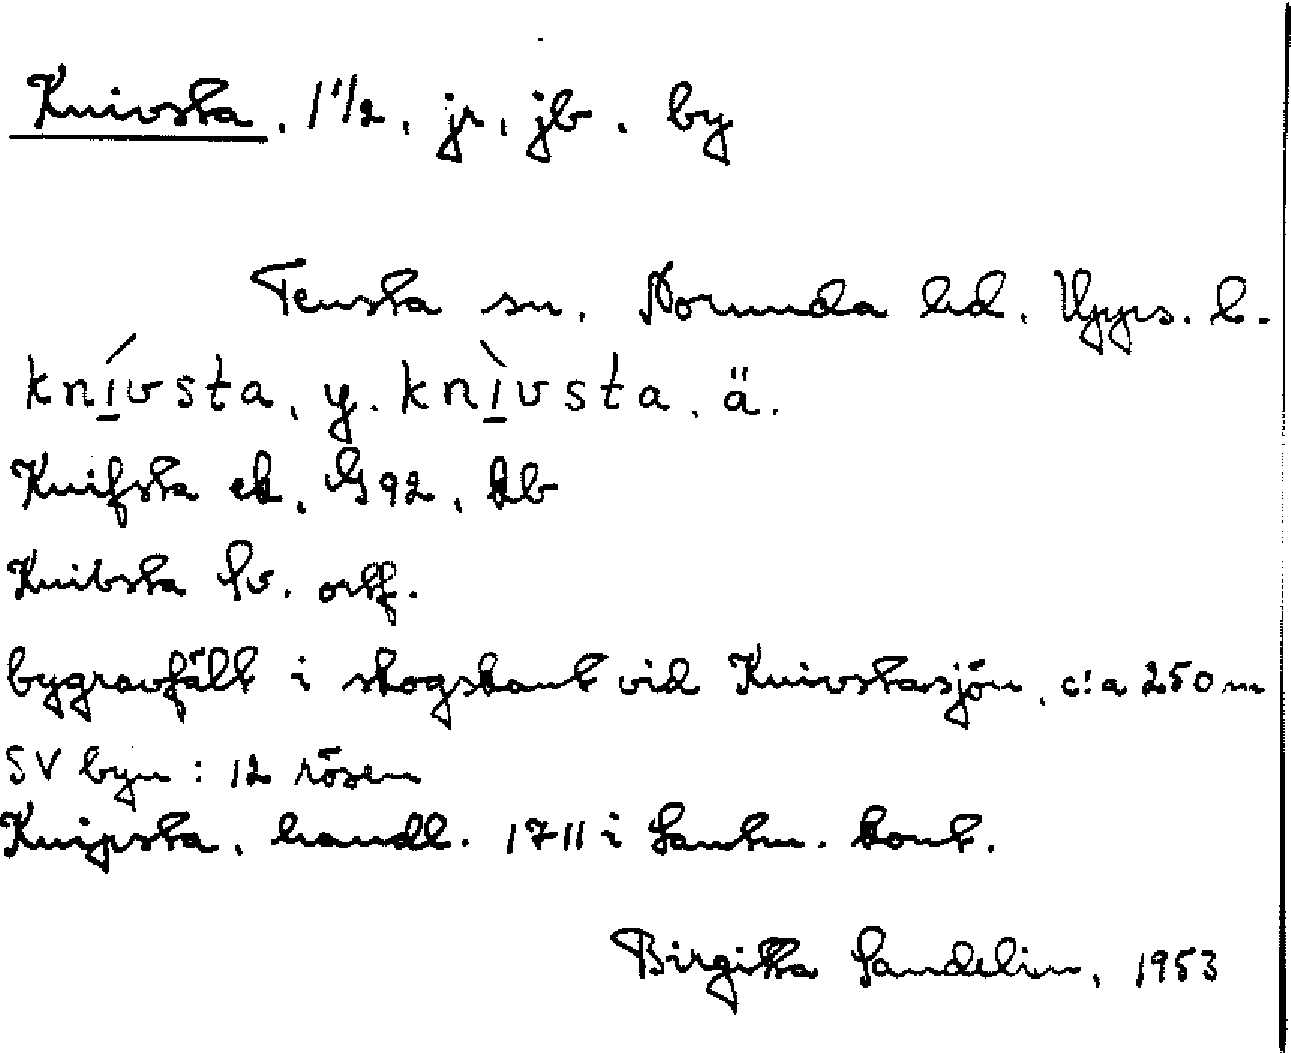 Knivsta, 1 1/2, jr, jb. by
Tensta sn. Norunda hd. Upps. l.
knívsta, y. knìvsta, ä.
Knifsta ek, G92, kb
Knibsta Sv. ortf.
bygravfält i skogskant vid Knivstasjön, c:a 250 m
SV byn : 12 rösen
Knipsta, handl. 1711 i Lantm. kont.
Birgitta Sandelin, 1953